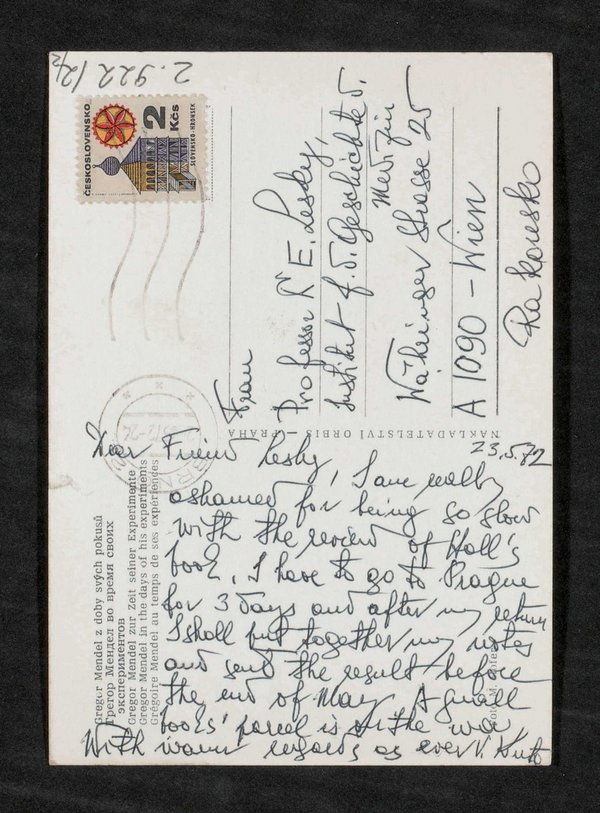 2.922/2/2
ČESKOSLOVENSKO
2 Kčs
SLOVENSKO-HRONSEK
Frau
Professor Dr E. Lesky,
Institut f. d. Geschichte d.
Medizin
Währinger Strasse 25
A 1090 – Wien
Rakousko
NAKLADATELSTVÍ ORBIS - PRAHA
Gregor Mendel z doby svých pokusů
Грегор Мендел во время своих
экспериментов
Gregor Mendel zur Zeit seiner Experimente
Gregor Mendel in the days of his experiments
Grégoire Mendel au temps de ses expériences
23.5.72
Dear Friend Lesky, I am really
ashamed for being so slow
with the review of Holl's
book. I have to go to Prague
for 3 days and after my return
I shall put together my notes
and send the result before
the end of May. A small
books' parcel is on the way
With warm regards as ever V.